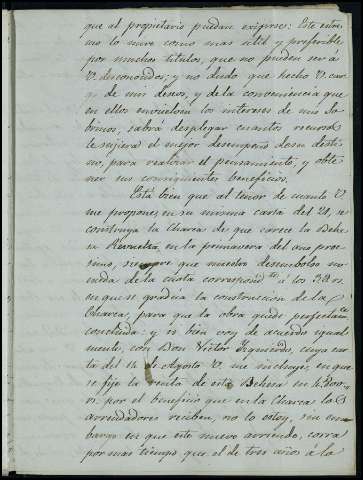 que al propietario puedan exigirse: Este estre-
mo lo miro como mas util y preferible
por muchos titulos, que no pueden ser á
V. desconocidos; y no dudo que hecho V. car-
go de mis deseos, y de la conveniencia que
en ellos envuelven los intereses de mis So-
brinos, sabrá desplegar cuantos recursos
le sujiera el mejor desempeño de su desti-
no, para realizar el pensamiento, y obte-
ner sus consiguientes beneficios.
Está bien que al tenor de cuanto V.
me propone, en su misma carta del 21, se
construya la Charca de que carece la Dehe-
sa Revuelta, en la primavera del año proc-
simo, siempre que nuestro desembolso no
esceda de la cuota correspond.te á los
en que se gradúa la construccion de la
Charca, para que la obra quede perfectam.te
concluida: y si bien estoy de acuerdo igual-
mente, con Don Victor Izquierdo, cuya car-
ta del 14 de Agosto V. me incluye, en que
se fije la renta de esta Dehesa en 4.500
rs. por el beneficio que en la Charca los
arrendadores reciben, no lo estoy, sin em-
bargo en que este nuevo arriendo, corra
por mas tiempo que el de tres años á la